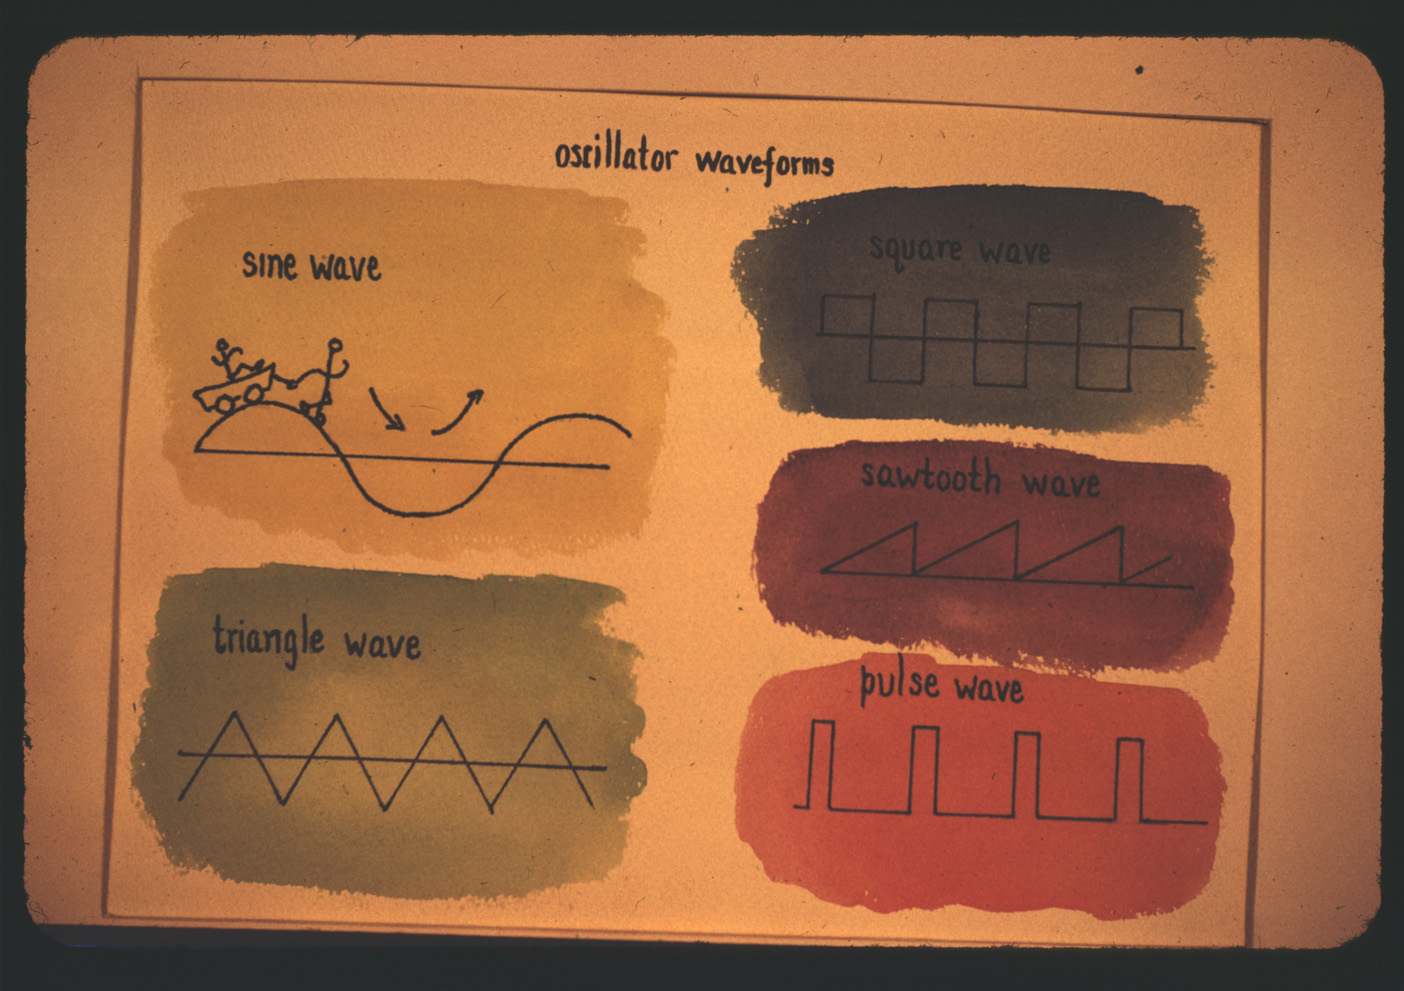 oscillator waveforms
sine wave
triangle wave
square wave
sawtooth wave
pulse wave